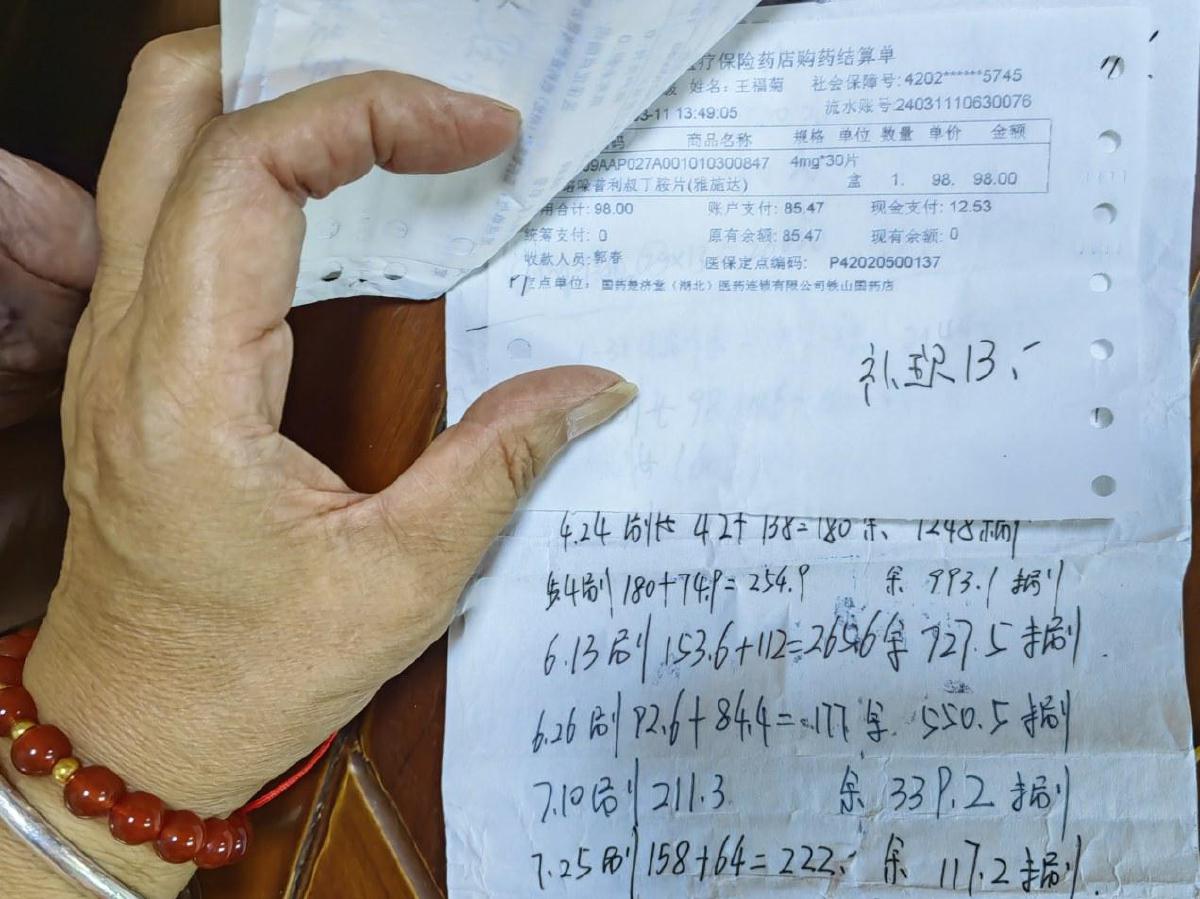 疗保险药店购药结算单
姓名: 王福菊 社会保障号: 4202******5745
3-11 13:49:05 流水账号:24031110630076
码 商品名称 规格 单位 数量 单价 金额
9AAP027A001010300847 4mg*30片
哚普利叔丁胺片(雅施达) 盒 1. 98. 98.00
用合计: 98.00 账户支付: 85.47 现金支付: 12.53
统筹支付: 0 原有余额: 85.47 现有余额: 0
收款人员: 郭春 医保定点编码: P42020500137
定点单位: 国药楚济堂(湖北)医药连锁有限公司铁山国药店
补现13.
4.24 刷 42+138=180 余 1248
5.4刷 180+74.9=254.9 余 993.1
6.13刷 153.6+112=265.6余 727.5
6.26刷 92.6+84.4=177余 550.5
7.10刷 211.3 余 339.2
7.25刷 158+64=222. 余 117.2